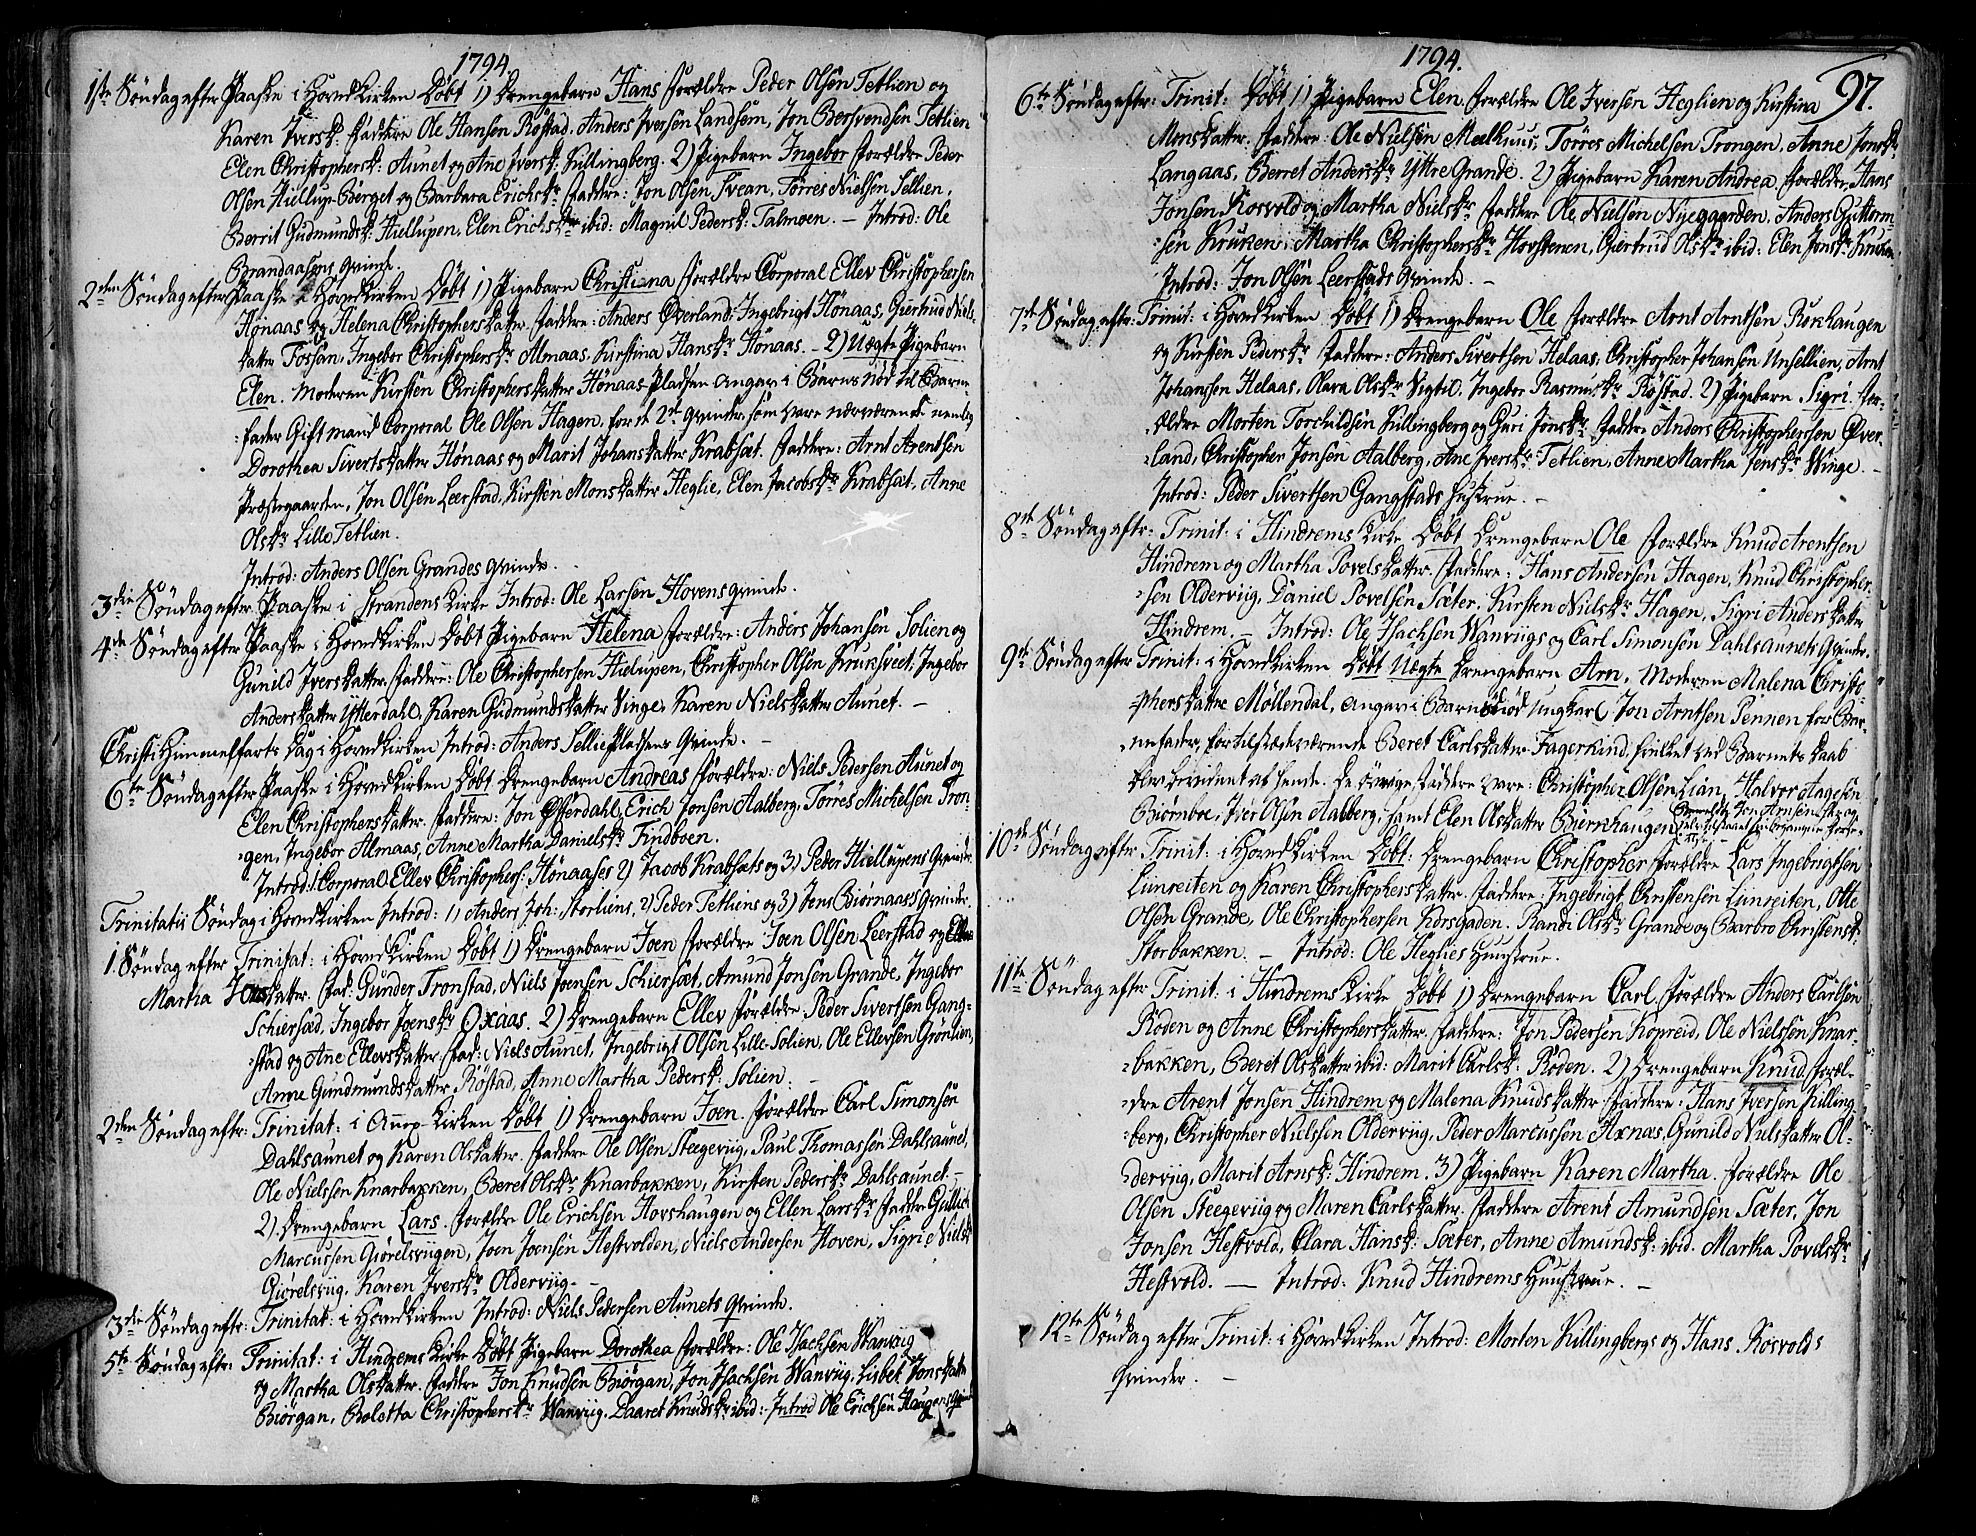 1794.
1ste Søndag efter Paaske i Hovedkirken Døbt 1) Drengebarn Hans Forældre Peder Olsen Tetlien og
Karen Iversk: Faddere Ole Hansen Røstad, Anders Iversen Landsem, Jon Bersvendsen Tetlien
Elen Christophersk: Aunet og Ane Iversk: Killingberg. 2) Pigebarn Ingebor Forældre Peder
Olsen Hiellup-Børget og Barbara Ericksdr Faddere: Jon Olsen Tvean, Tørres Nielsen Sellien,
Berrit Gudmundsk: Hiellupen, Elen Erichsdr ibid: Magnil Pedersk: Talmoen. – Introd: Ole
Brandaasens Qvinde.
2den Søndag efter Paaske i Hovedkirken Døbt 1) Pigebarn Christiana Forældre Corporal Ellev Christophersen
Hønaas og Helena Christophersdatter Faddere: Anders Øverland: Ingebrigt Hønaas, Giertrud Niels-
datter Fossan, Ingebor Christophersdr Almaas, Kirstina Hansdr Hønaas. – 2) Uægte Pigebarn
Elen. Moderen Kirsten Christophersdatter Hønaas-Pladsen angav i Barns Nød til Barne
fader Gift mand Corporal Ole Olsen Hagen, for de 2de Qvinder, som vare nærværende nemlig
Dorothea Sivertsdatter Hønaas og Marit Johansdatter Krabsæt. Faddere: Arnt Arentsen
Præstegaarden, Jon Olsen Leerstad, Kirsten Monsdatter Heglie, Elen Jacobsdr Krabsæt, Anne
Olsdr Lille Tetlien.
Introd: Anders Olsen Grandes Qvinde.
3die Søndag efter Paaske i Strandens Kirke Introd: Ole Larsen Hovens Qvinde.
4de Søndag efter Paaske i Hovedkirken Døbt Pigebarn Helena Forældre: Anders Johansen Solien og
Gunild Iversdatter. Faddere: Ole Christophersen Hielupen, Christopher Olsen Kruksveet, Ingebor
Andersdatter Ytterdahl, Karen Gudmundsdatter Vinge, Karen Nielsdatter Aunet. –
Christi Himmelfarts Dag i Hovedkirken Introd: Anders Sellie Pladsens Qvinde. –
6te Søndag efter Paaske i Hovedkirken Døbt Drengebarn Andreas Forældre: Niels Pedersen Aunet og
Elen Christophersdatter. Faddere: Jon Ofterdahl, Erich Jonsen Aalberg, Tørres Michelsen Tron-
gen, Ingebor Almaas, Anne Martha Danielsdr Findboen.
Introd: 1) Corporal Ellev Christophers: Hønaases 2) Jacob Krabsæts og 3) Peder Hiellupens Qvinder
Trinitatis Søndag i Hovedkirken Introd: 1) Anders Joh: Storliens, 2) Peder Tetliens og 3) Jens Biørnaas's Qvinder.
1. Søndag efter Trinitat: i Hovedkirken Døbt 1) Drengebarn Joen Forældre Joen Olsen Leerstad og
Martha Datter. Fad: Gunder Tronstad, Niels Joensen Schiersæt, Amund Jonsen Grande, Ingebor
Schiersæd, Ingebor Joensdr Oxaas. 2) Drengebarn Ellev Forældre Peder Sivertsen Gang-
stad og Ane Ellevsdatter Fad: Niels Aunet, Ingebrigt Olsen Lille-Solien, Ole Ellevsen Grønlien,
Anne Gundmundsdatter Røstad, Anne Martha Pedersk: Solien. –
2den Søndag eftr: Trinitat: i Annex-Kirken Døbt 1) Drengebarn Joen. Forældre Carl Simonsen
Dahlsaunet og Karen Olsdatter. Faddere Ole Olsen Steegeviig, Paul Thomassen Dahlsaunet,
Ole Nielssen Knarbakken, Beret Olsdr Knarbakken, Kirsten Pedersdr Dahlsaunet –
2) Drengebarn Lars. Forældre Ole Erichsen Hovshaugen og Ellen Larsdr Faddre Gullick
Marcussen Giørelsvigen, Joen Joensen Hestvolden, Niels Andersen Hoven, Sigri Nielsdr
Giørelsviig. Karen Iversdr Olderviig. –
3die Søndag eftr: Trinitat: i Hovedkirken Introd: Niels Pedersen Aunets Qvinde.
5te Søndag eftr: Trinitat: i Hindrems Kirke Døbt Pigebarn Dorothea Forældre: Ole Isachsen Wanviig
og Martha Olsdatter. Faddere Jon Knudsen Biørgan, Jon Isachsen Wanviig, Lisbet Jonsdatter
Biørgan, Boletta Christophersdr Wanviig. Daaret Knudsdr ibid: – Introd Ole Erichsen Haugens Qvinde
1794. 97.
6te Søndag efter: Trinit: Døbt 1) Pigebarn Elen. Forældre Ole Iversen Heglien og Kirstina
Monsdatter. Faddere: Ole Nielsen Melhuus, Tørres Michelsen Trongen, Anne Jonsdr
Langaas, Berret Andersdr Yttre Grande. 2) Pigebarn Karen Andrea. Forældre, Hans
Jonsen Kosvold og Martha Nielsdr Faddere Ole Nielsen Nyegaarden, Anders Guttorm-
sen Kruken, Martha Christophersdr Hovstenen, Giertrud Olsdr ibid: Elen Jonsdr Kruken
Introd: Jon Olsen Leerstads Qvinde. –
7de Søndag eftr: Trinit: i Hovedkirken Døbt 1) Drengebarn Ole Forældre Arnt Arntsen Rokhaugen
og Kirsten Pedersdr Faddere: Anders Sivertsen Helaas, Christopher Johansen Unsellien, Arnt
Johansen Helaas, Olava Olsdr Vigtil, Ingebor Rasmusdr Røstad. 2) Pigebarn Sigri. For-
ældre Morten Torchildsen Killingberg og Guri Jonsdr Faddre Anders Christophersen Øver-
land, Christopher Jonsen Aalberg, Ane Iversdr Tetlien, Anne Martha Jensdr Winge. –
Introd: Peder Sivertsen Gangstads Hustrue. –
8de Søndag eftr: Trinit: i Hindrems Kirke Døbt Drengebarn Ole Forældre Knud Arentsen
Hindrem og Martha Povelsdatter. Faddere: Hans Andersen Hagen, Knud Christopher-
sen Olderviig, Daniel Povelsen Sæter, Kirsten Nielsdr Hagen, Sigri Andersdatter
Hindrem. – Introd: Ole Isachsen Wanviigs og Carl Simonsen Dahlsaunets Qvinder.
9de Søndag efter Trinit: i Hovedkirken Døbt Uægte Drengebarn Arn. Moderen Malena Christo-
phersdatter Møllendal, angav i Barns Nød Ungkarl Jon Arntsen Pennen for Bar-
nefader, for tilstædeværende Beret Carlsdatter Fagerkind, hvilket ved Barnets Daab
blev bevidnet at hende. De øvrige Faddere vare: Christopher Olsen Lian, Halvor Aagesen
Biørnboe, Iver Olsen Aalberg, samt Elen Olsdatter Bierkhaugen
10de Søndag efter Trinit: i Hovedkirken Døbt: Drengebarn Christopher Forældre Lars Ingebrigtsen
Liinreiten og Karen Christophersdatter. Faddere: Ingebrigt Christensen Liinreiten, Olle
Olsen Grande, Ole Christophersen Korsgaden. Randi Olsdr Grande og Barbro Christensd:
Storbakken. – Introd: Ole Heglies Huustrue.
11te Søndag efter Trinit: i Hindrems Kirke Døbt 1) Drengebarn Carl. Forældre Anders Carlsen
Røden og Anne Christophersdatter. Faddere: Jon Pedersen Kopreid, Ole Nielsen Knar-
bakken, Berit Olsdatter ibid: Marit Carlsk: Røden. 2) Drengebarn Knud. Foræl-
dre Arent Jonsen Hindrem og Malena Knudsdatter Faddere: Hans Iversen Killing-
berg, Christopher Nielssen Olderviig, Peder Marcussen Axnæs, Gunild Nielsdatter Ol-
derviig, Marit Arnsk: Hindrem. 3) Pigebarn Karen Martha. Forældre Ole
Olsen Steegeviig og Maren Carlsdatter. Faddere Arent Amundsen Sæter, Jon
Jonsen Hestvold, Clara Hansk: Sæter, Anne Amundsk: ibid. Martha Povelsdr
Hestvold. – Introd: Knud Hindrems Huustrue. –
12te Søndag efter Trinit: i Hovedkirken Introd: Morten Killingbergs og Hans Kosvolds
Qvinder. –